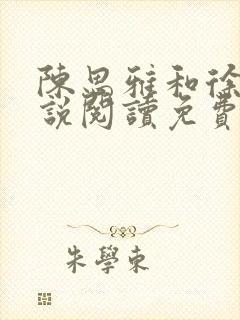 陳思雅和徐
說閱讀免費
朱學東